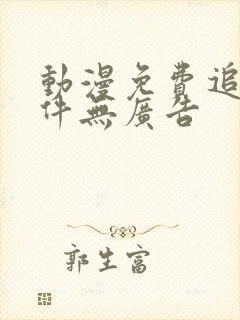 動漫免費追
件無廣告
郭生富